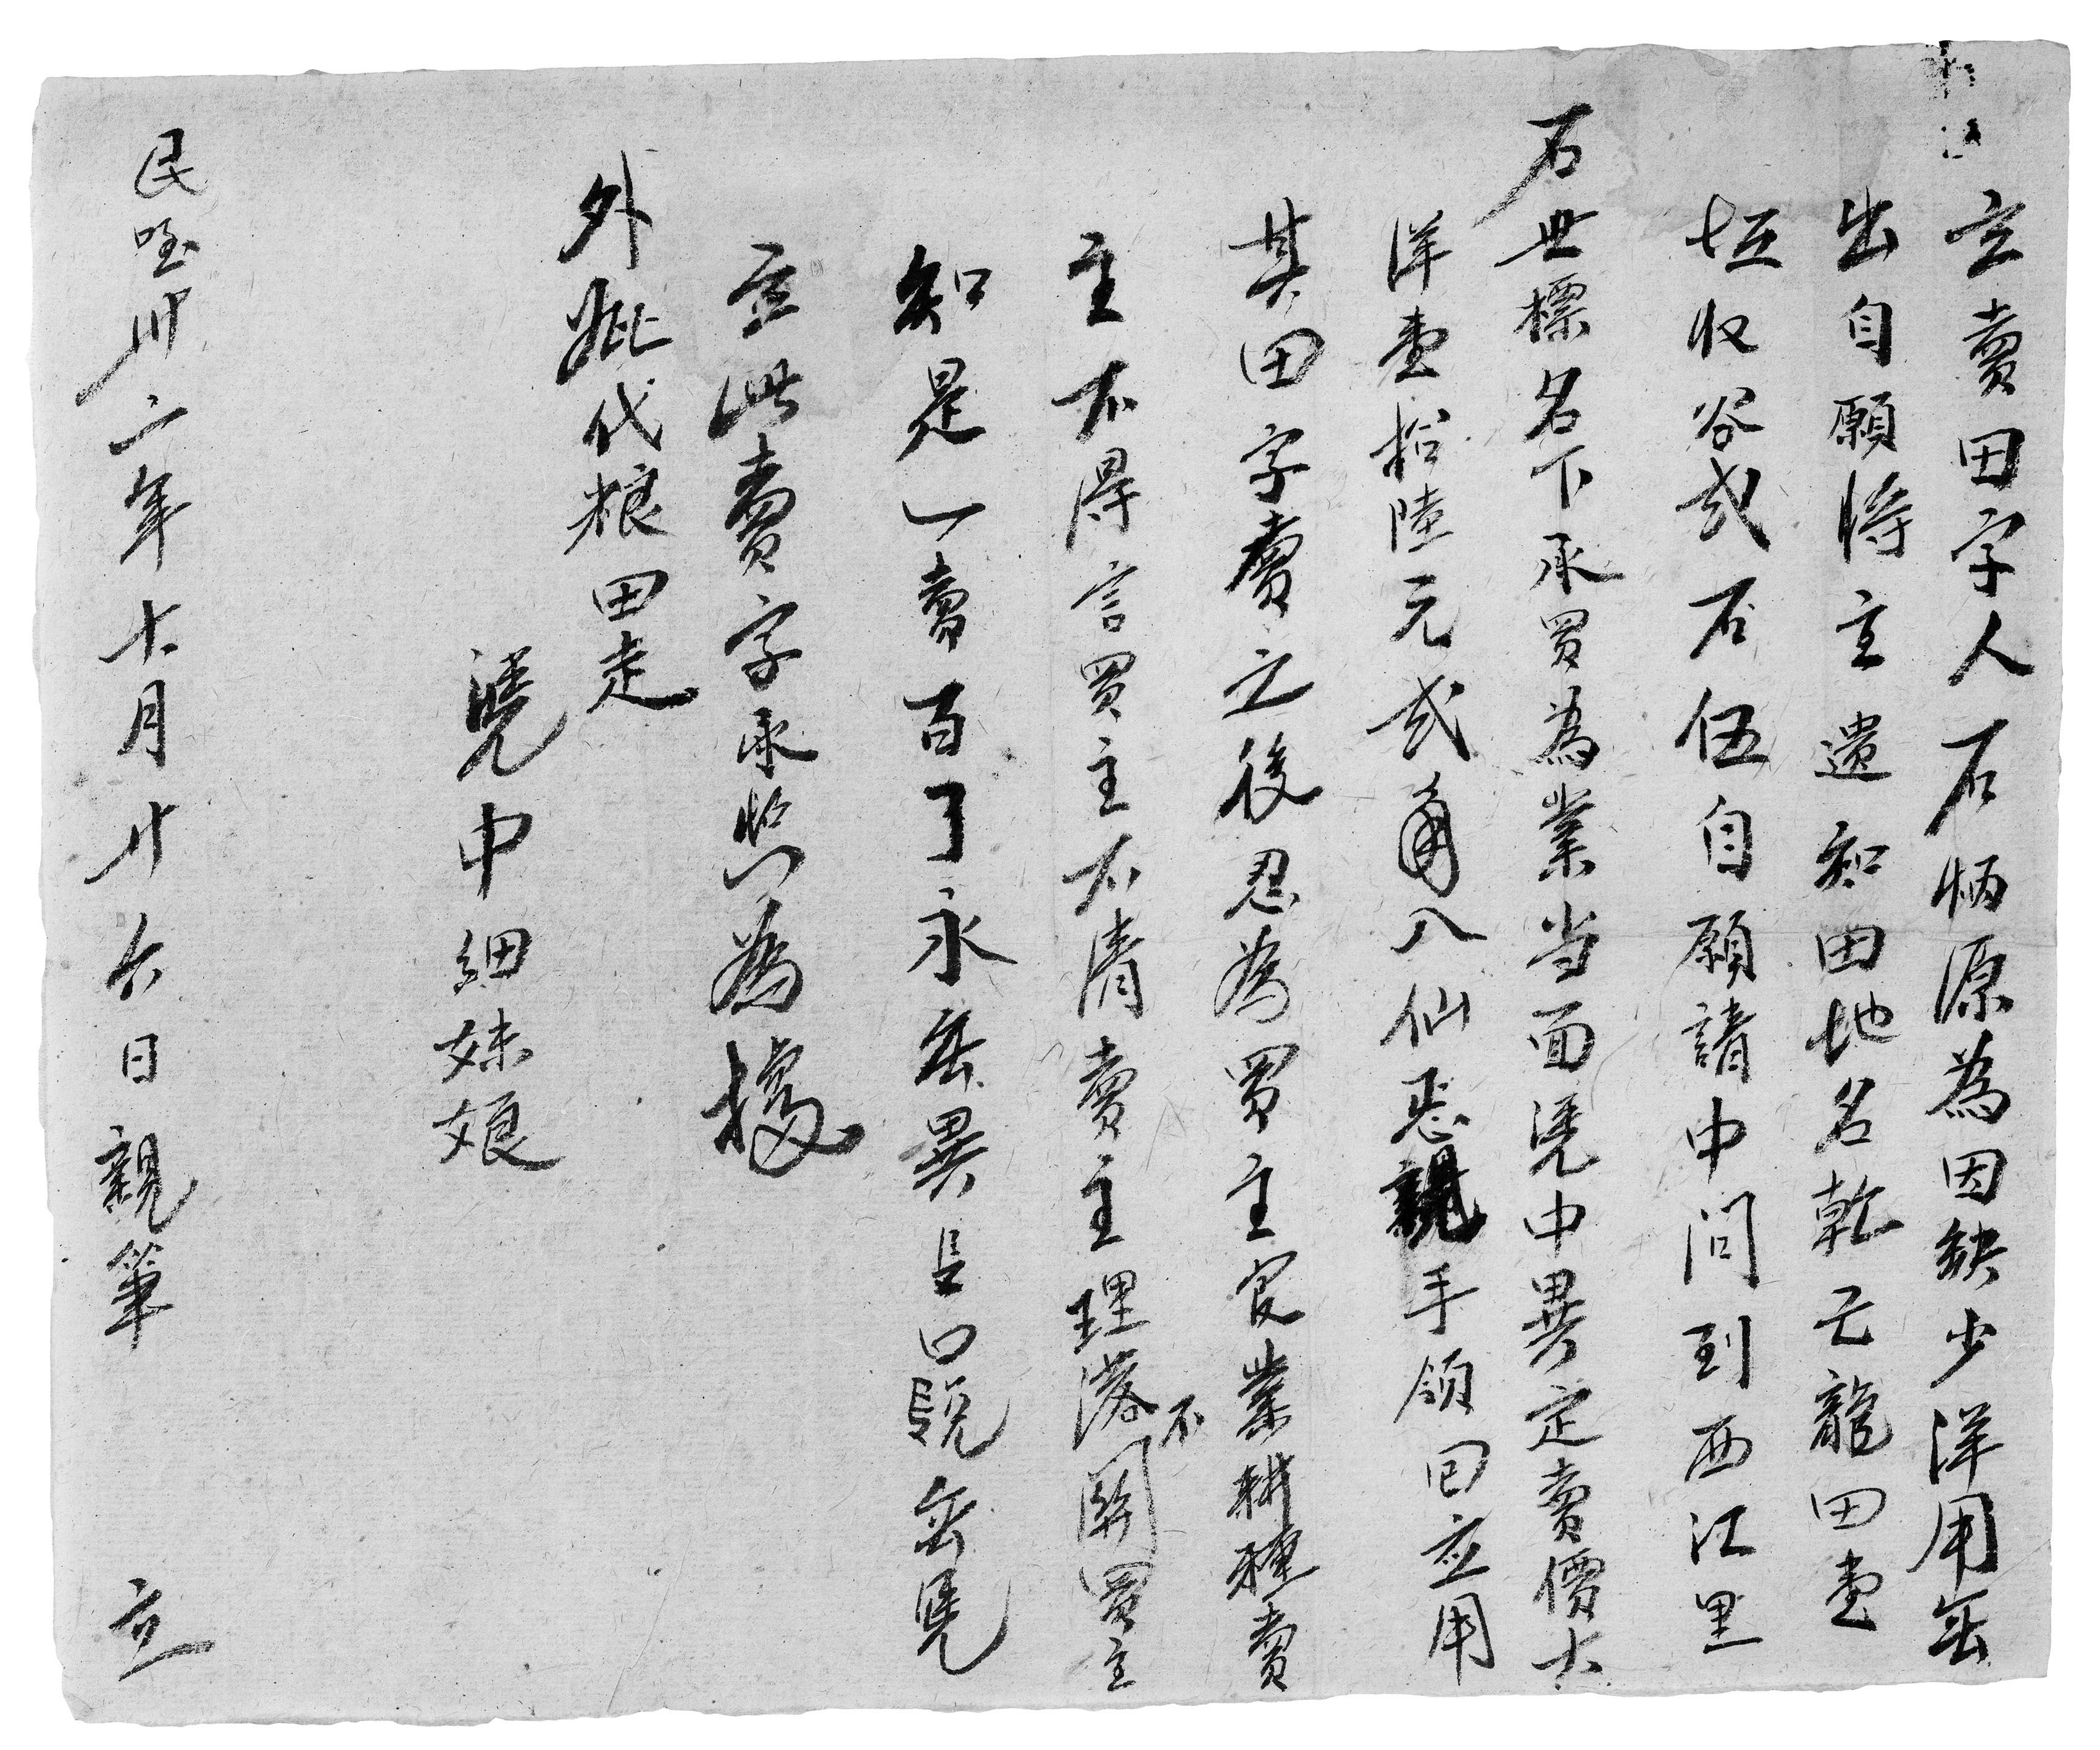 立賣田字人石炳源為因缺少洋用無
出自願将主遺知田地名乾亡龍田壹
坵收谷貮石伍自願請中问到西江里
石世標名下承買為業当面凭中異定賣價大
洋壹拾陸元貮角八仙親手領回应用
其田字賣之後忍為買主管業耕種賣
主不得言買主不清賣主理落不関買主
知是一賣百了永無異言口説無凭
立此賣字永照為據
外批代粮田走
凭中細妹娘
民国卅二年十月廿六日親筆 立